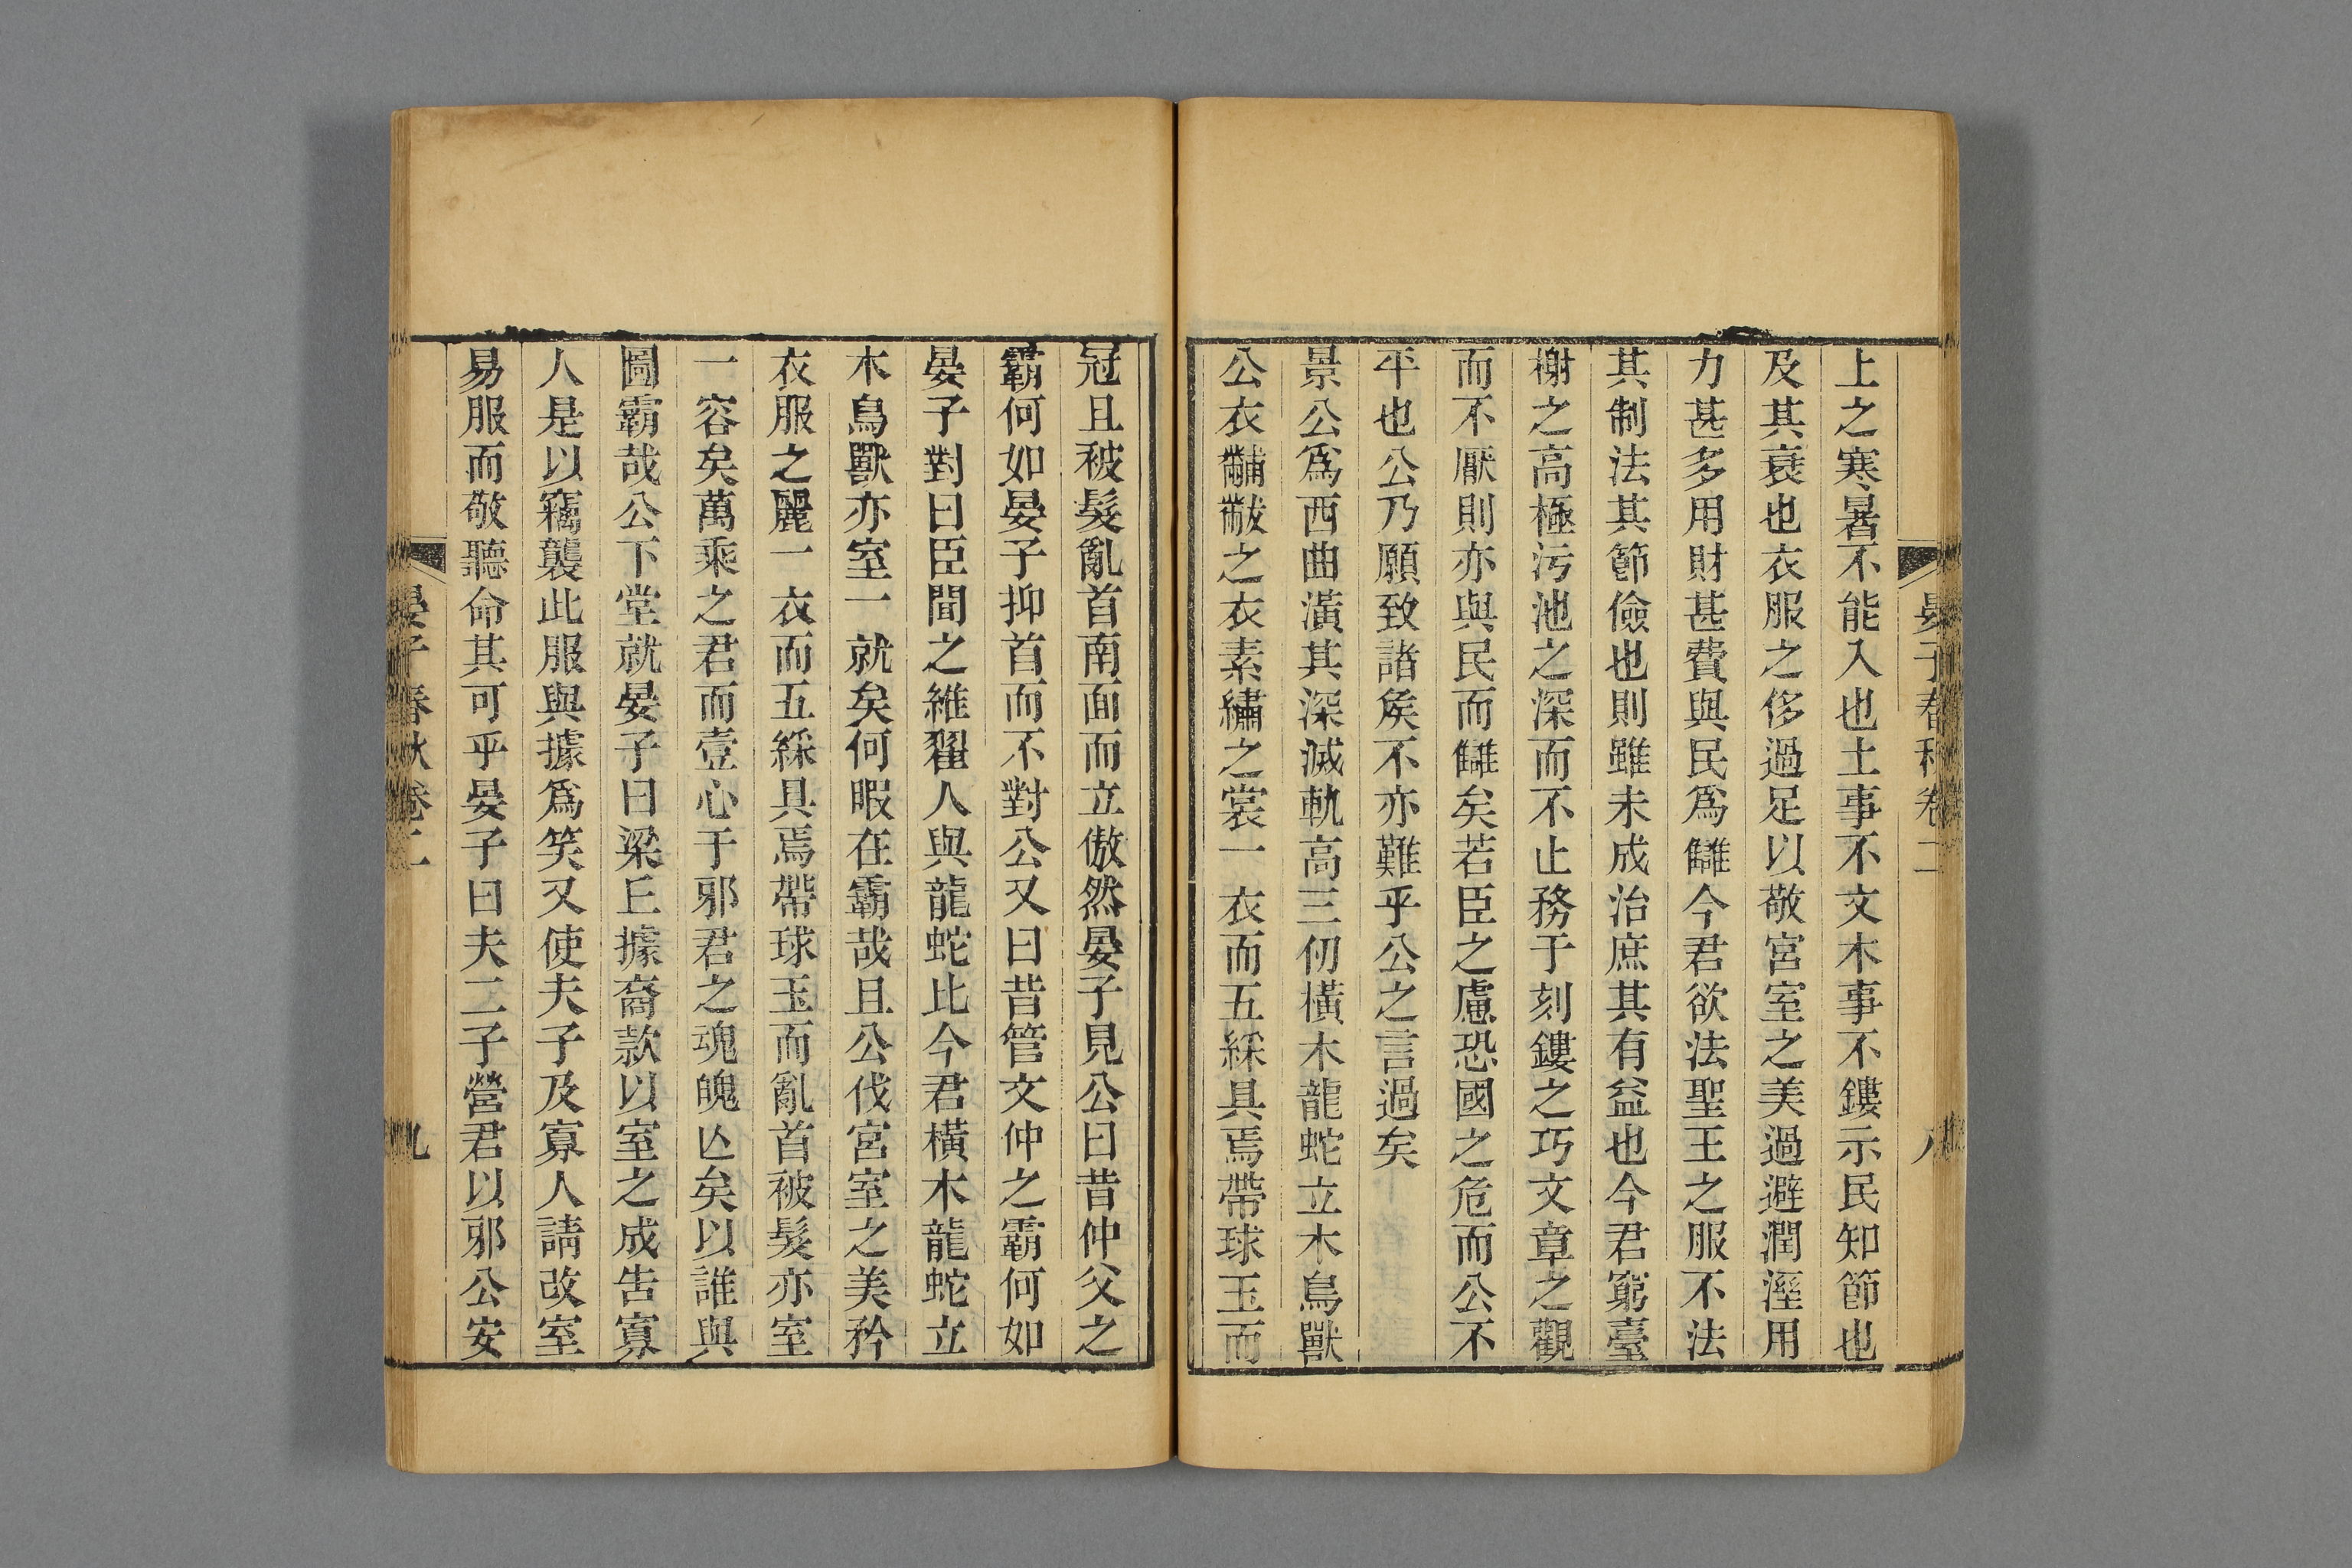 晏子春秋卷二
八
上之寒暑不能入也土事不文木事不鏤示民知節也
及其衰也衣服之侈過足以敬宮室之美過避潤溼用
力甚多用財甚費與民爲讎今君欲法聖王之服不法
其制法其節儉也則雖未成治庶其有益也今君窮臺
榭之高極污池之深而不止務于刻鏤之巧文章之觀
而不厭則亦與民而讎矣若臣之慮恐國之危而公不
平也公乃願致諸矦不亦難乎公之言過矣
景公爲西曲潢其深滅軌高三仞橫木龍蛇立木鳥獸
公衣黼黻之衣素繡之裳一衣而五綵具焉帶球玉而
冠且被髮亂首南面而立傲然晏子見公曰昔仲父之
霸何如晏子抑首而不對公又曰昔管文仲之霸何如
晏子對曰臣聞之維翟人與龍蛇比今君橫木龍蛇立
木鳥獸亦室一就矣何暇在霸哉且公伐宮室之美矜
衣服之麗一衣而五綵具焉帶球玉而亂首被髮亦室
一容矣萬乘之君而壹心于邪君之魂魄亾矣以誰與
圖霸哉公下堂就晏子曰梁丘據裔款以室之成告寡
人是以竊襲此服與據爲笑又使夫子及寡人請改室
易服而敬聽命其可乎晏子曰夫二子營君以邪公安
晏子春秋卷二
九